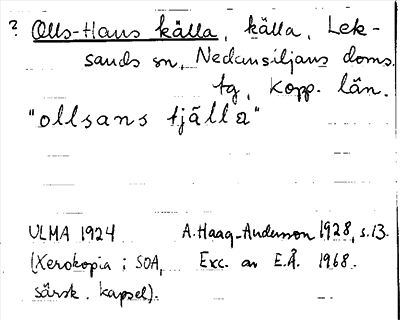 ? Olls-Hans källa, källa, Lek-
sands sn, Nedansiljans doms.
tg, Kopp. län.
"ollsans tjälla"
ULMA 1924 A. Haag-Andersson 1928, s. 13.
(Xerokopia i SOA, Exc. av E.Å. 1968.
särsk. kapsel).